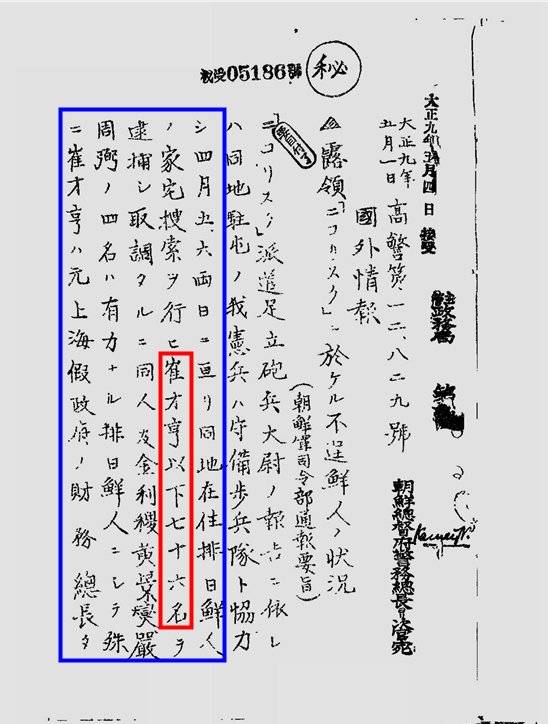 秘
秘受05186號
大正九年五月四日 接受
大正九年五月一日
高警第一二八二九號
國外情報
露領「ニコリスク」ニ於ケル不逞鮮人ノ状況
(朝鮮軍司令部通報要旨)
ニコリスク派遣足立砲兵大尉ノ報告ニ依レ
ハ同地駐屯ノ我憲兵ハ守備歩兵隊ト協力
シ四月五、六両日ニ亘リ同地在住排日鮮人
ノ家宅捜索ヲ行ヒ崔才亨以下七十六名ヲ
逮捕シ取調タルニ同人及金利稷黄景燮嚴
周弼ノ四名ハ有力ナル排日鮮人ニシテ殊
ニ崔才亨ハ元上海假政府ノ財務總長タ
朝鮮總督府警務總長